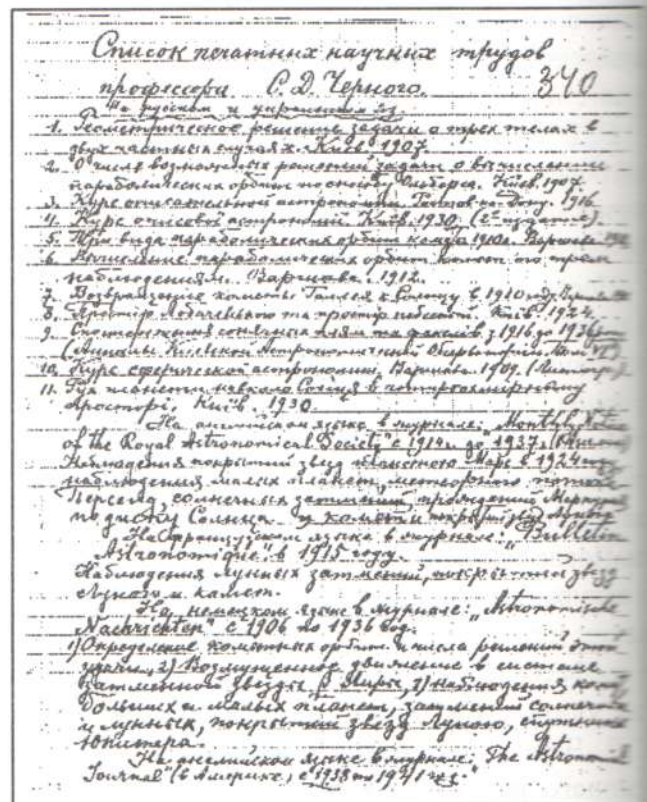 Список печатных научных трудов
профессора С. Д. Черного. 340
На русском и украинском яз.
1. Геометрическое решение задачи о трех телах в
двух частных случаях. Київ. 1907.
2. О числе возможных решений задачи о вычислении
параболических орбит по способу Ольберса. Київ. 1907.
3. Курс описательной астрономии. Ростов на-Дону. 1916
4. Курс астрономії. Київ. 1930. (2е издание).
5. Три вида параболических орбит 1910а. Варшава
6. Вычисление параболических орбит комет по трем
наблюдениям. Варшава. 1912.
7. Возвращение кометы Галлея к Солнцу в 1910 году.
8. Простір Лобачевського та простір Київ. 1924.
9. сонячных плям та факелів з 1916 до 1936
(Аннали Київської Астрономичной Обсерваторії. Том VI)
10. Курс сферической астрономии. Варшава. 1909. (Литогр.)
11. Рух планети навколо Сонця в чотирохмірному
просторі. Київ. 1930.
На английском языке в журнале: „Monthly Notices
of the Royal Astronomical Society" с 1914 до 1937.
Наблюдения покрытий звезд планетою Марс в 1924 году
наблюдения малых планет, метеорного потока
Персеид, солнечных затмений, прохождений Меркурия
по диску Солнца и комет и покрытий звезд Луною
На французском языке в журнале: „Bulletin
Astronomique" в 1915 году.
Наблюдения лунных затмений, покрытий звезд
Луною и комет.
На немецком языке в журнале: „Astronomische
Nachrichten" с 1906 до 1936 год.
1) Определение кометных орбит и числа решений этой
задачи, 2) Возмущенное движение в системе
затменной звезды β Лиры, 3) наблюдения комет
больших и малых планет, затмений солнечных
и лунных, покрытий звезд Луною, спутников
Юпитера.
На английском языке в журнале: „The Astronomical
Journal" (в Америке, с 1938 по 1941 г.г."